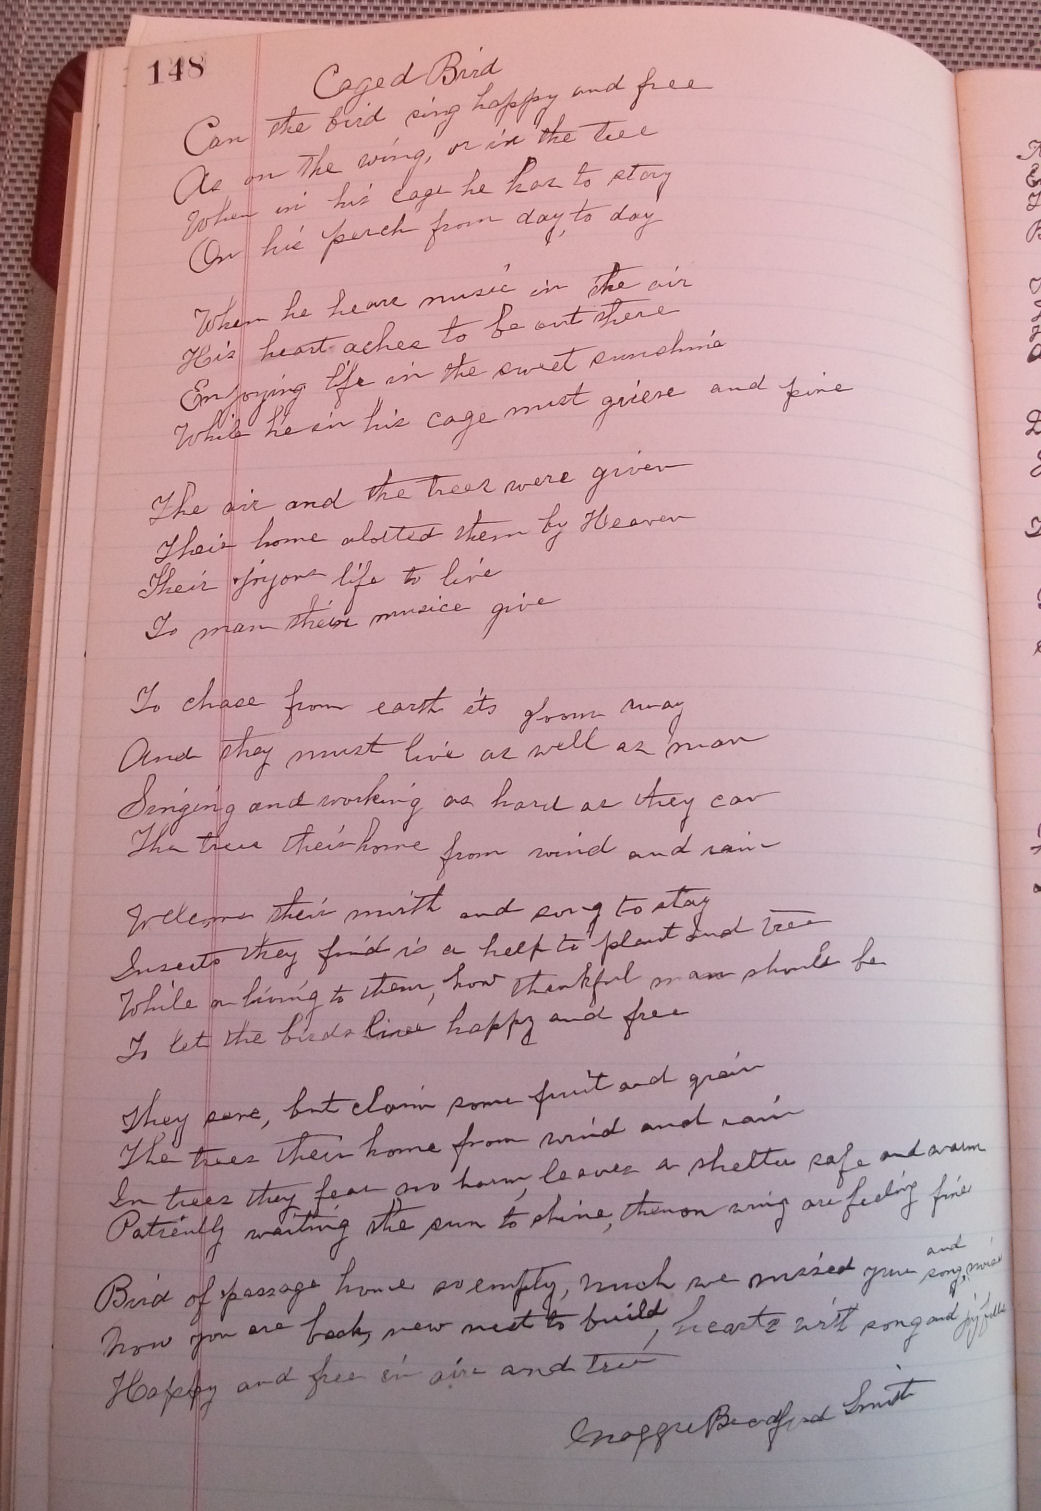 148
Caged Bird
Can the bird sing happy and free
As on the wing, or in the tree
When in his cage he has to stay
On his perch from day, to day
When he hears music in the air
His heart aches to be out there
Enjoying life in the sweet sunshine
While he in his cage must grieve and pine
The air and the trees were given
Their home alotted them by Heaven
Their joyous life to live
To man their musice give
To chase from earth its gloom away
And they must live as well as man
Singing and working as hard as they can
The trees their home from wind and rain
Welcome their mirth and song to stay
Insects they find is a help to plant and tree
While a living to them, how thankful man should be
To let the birds live happy and free
They save, but claim some fruit and grain
The trees their home from wind and rain
In trees they fear no harm, leaves a shelter safe and warm
Patiently waiting the sun to shine, then on wing are feeling fine
Bird of passage home so empty, much we missed your song, and
Now you are back, new nest to build, hearts with song and joy
Happy and free in air and tree
Maggie Bradford Smith